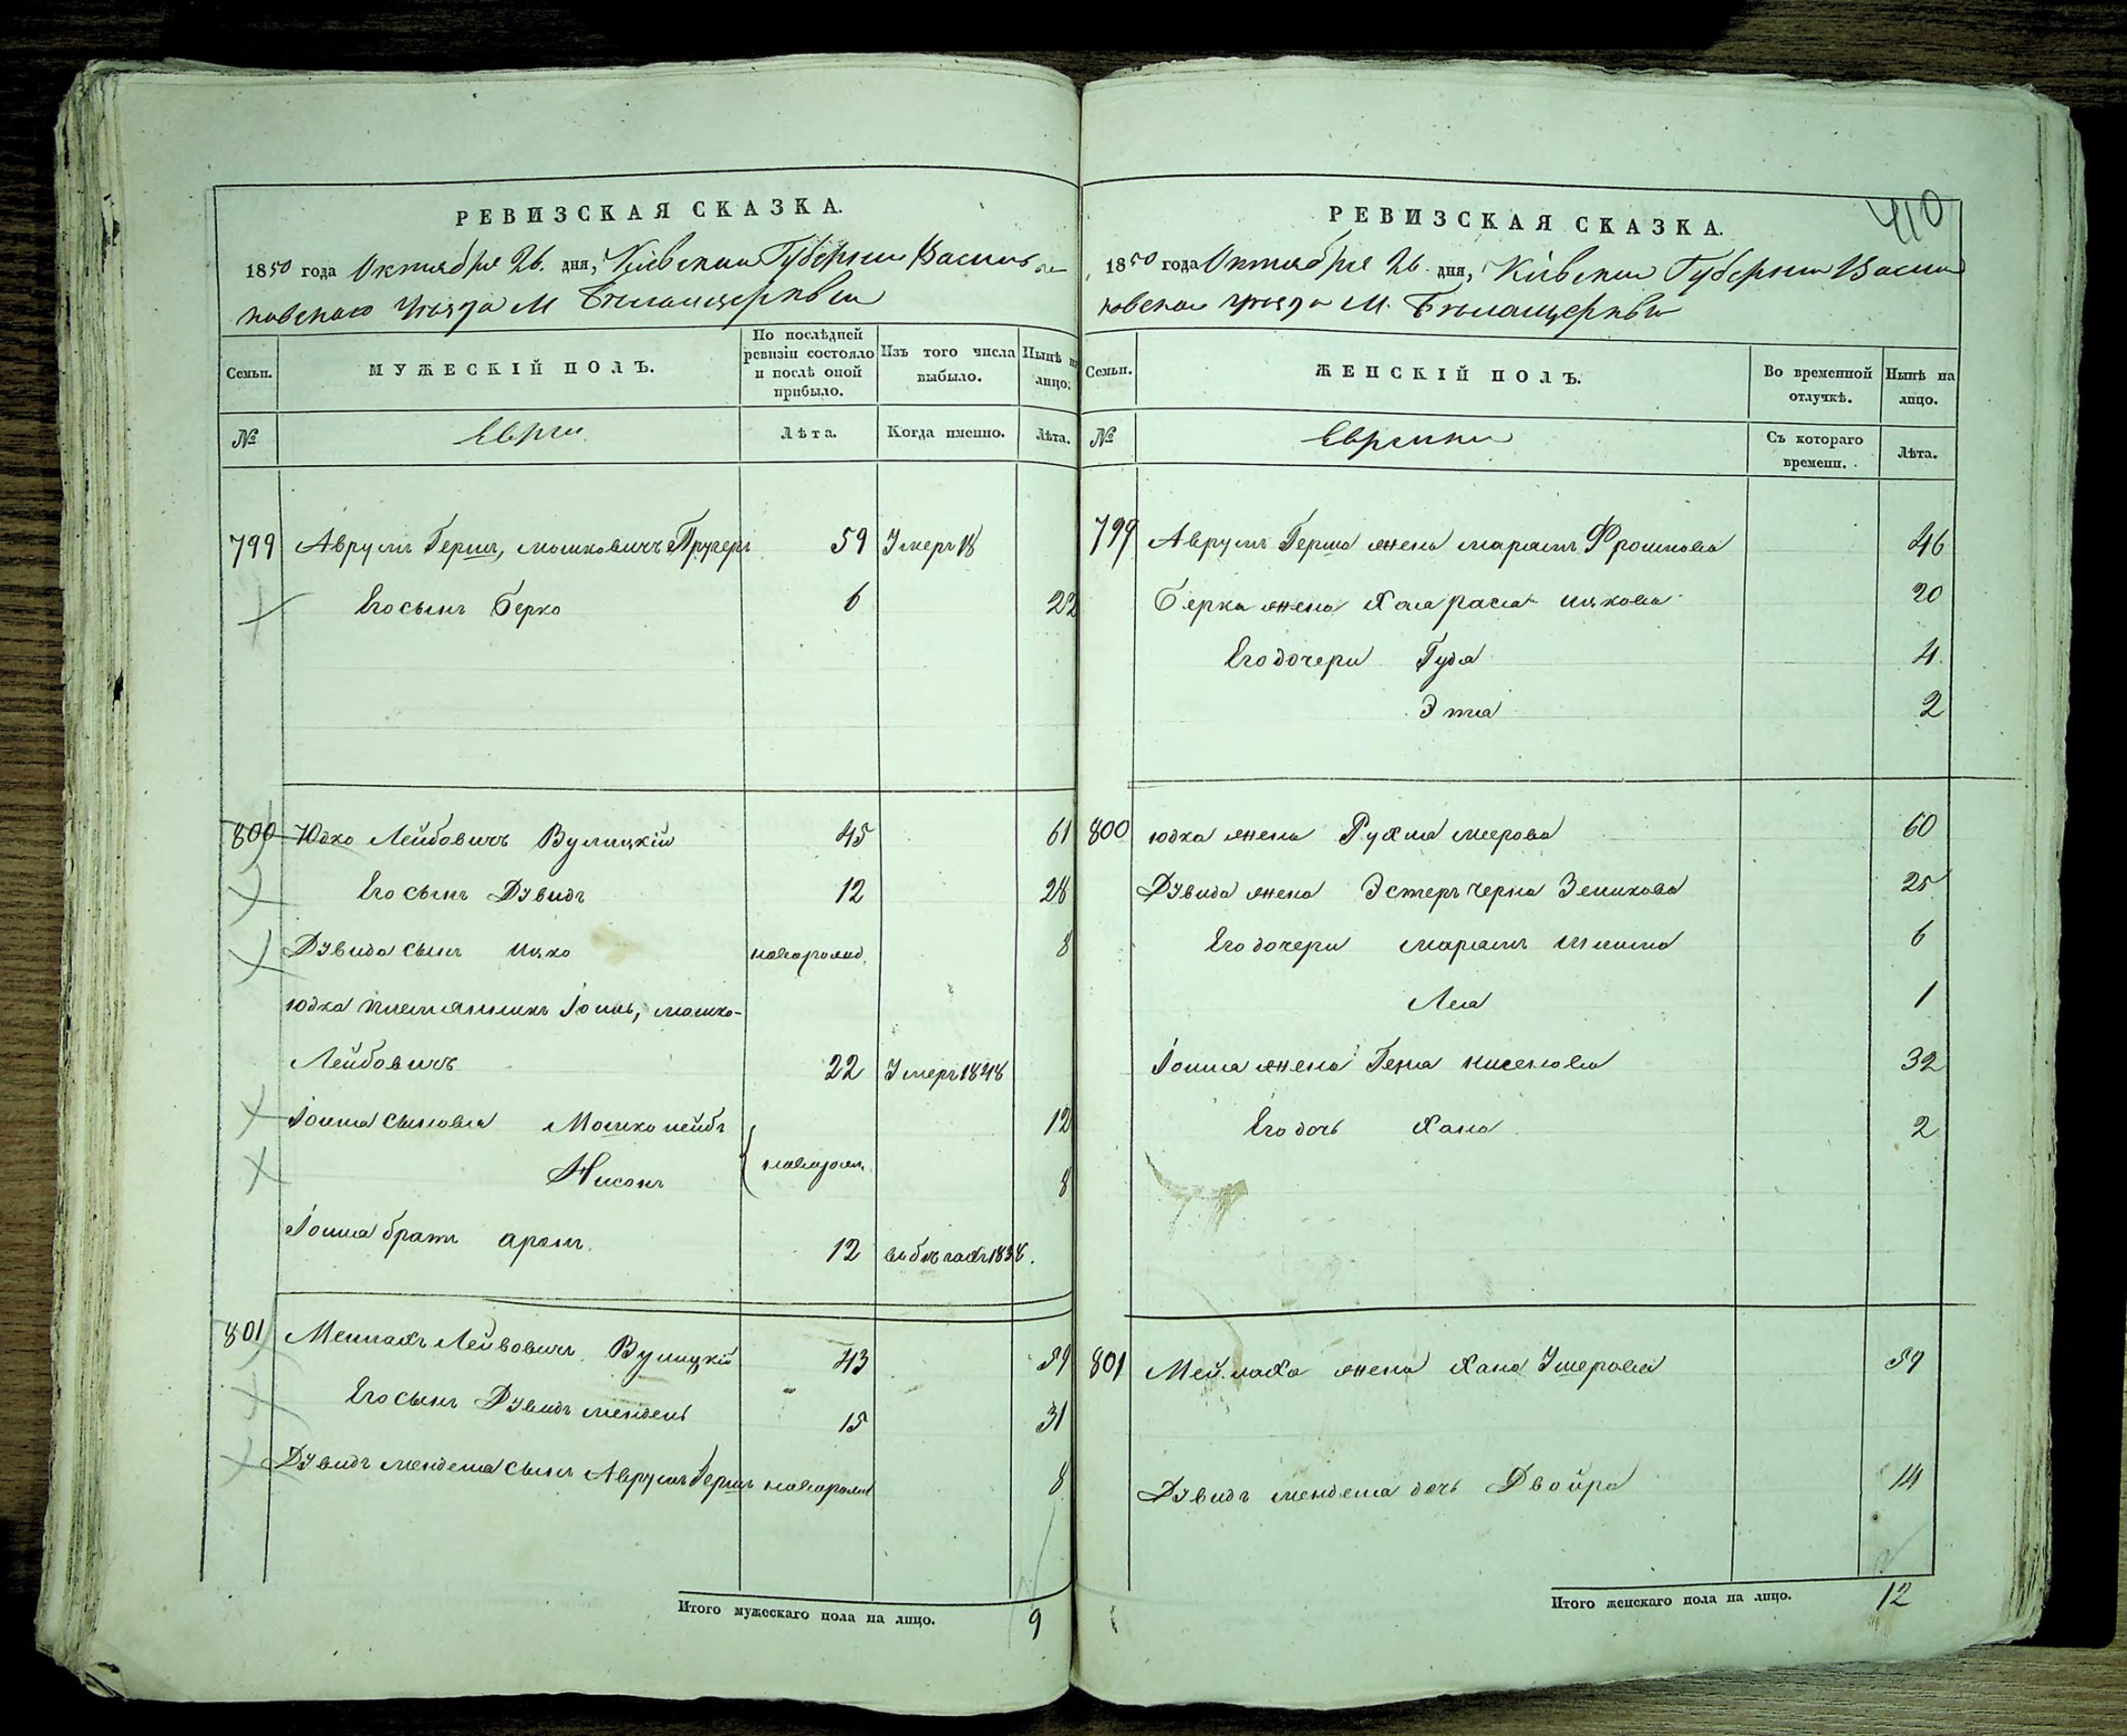 РЕВИЗСКАЯ СКАЗКА.
1850 года Октября 26. дня, Кіевской Губерніи Василь
ковскаго Уѣзда М Бѣлоицеркви
Семьи.
МУЖЕСКІЙ ПОЛЪ.
По послѣдней ревизіи состояло и послѣ оной прибыло.
Изъ того числа выбыло.
Нынѣ на лицо.
№
Евреи.
Лѣта.
Когда именно.
Лѣта.
799 Аврумъ Гершъ, мошковичъ 59 Умеръ 18
Его сынъ Берко 6 22
800 Юдко Лейбовичъ Вулицкій 45 61
Его сынъ Дувидъ 12 28
Дувида сынъ ицко новорожд. 8
юдка племянникъ Іоинъ, мошко-
Лейбовичъ 22 Умеръ 1848
Іоина сыновья Мошко лейбъ 12
новорож.
Нисонъ 8
Іоина братъ аронъ. 12 въ бѣгахъ 1838.
801 Меилахъ Лейбовичъ Вулицкій 43 59
Его сынъ Дувидъ мендель 15 31
Дувидъ менделя сынъ Аврумъ Гершъ новорожд 8
Итого мужескаго пола на лицо. 9
410
РЕВИЗСКАЯ СКАЗКА.
1850 года Октября 26 дня, Кіевской Губерніи Васил
ковскаго уѣзда М. Бѣлоицеркви
Семьи.
ЖЕНСКІЙ ПОЛЪ.
Во временной отлучкѣ.
Нынѣ на лицо.
№
Еврейки
Съ котораго времени.
Лѣта.
799 Аврумъ Герша жена марьямъ Фроимова 46
Берка жена Хая рася ицкова 20
Его дочери Гудя 4
Этя 2
800 юдка жена Рухля меерова 60
Дувида жена Эстеръ черна Зеликова 25
Его дочери марьямъ 6
Лея 1
Іоина жена Геня нисенова 32
Его дочь Хана 2
801 Мейлаха жена Хана Умерова 59
Дувидъ менделя дочь Двойра 14
Итого женскаго пола на лицо. 12